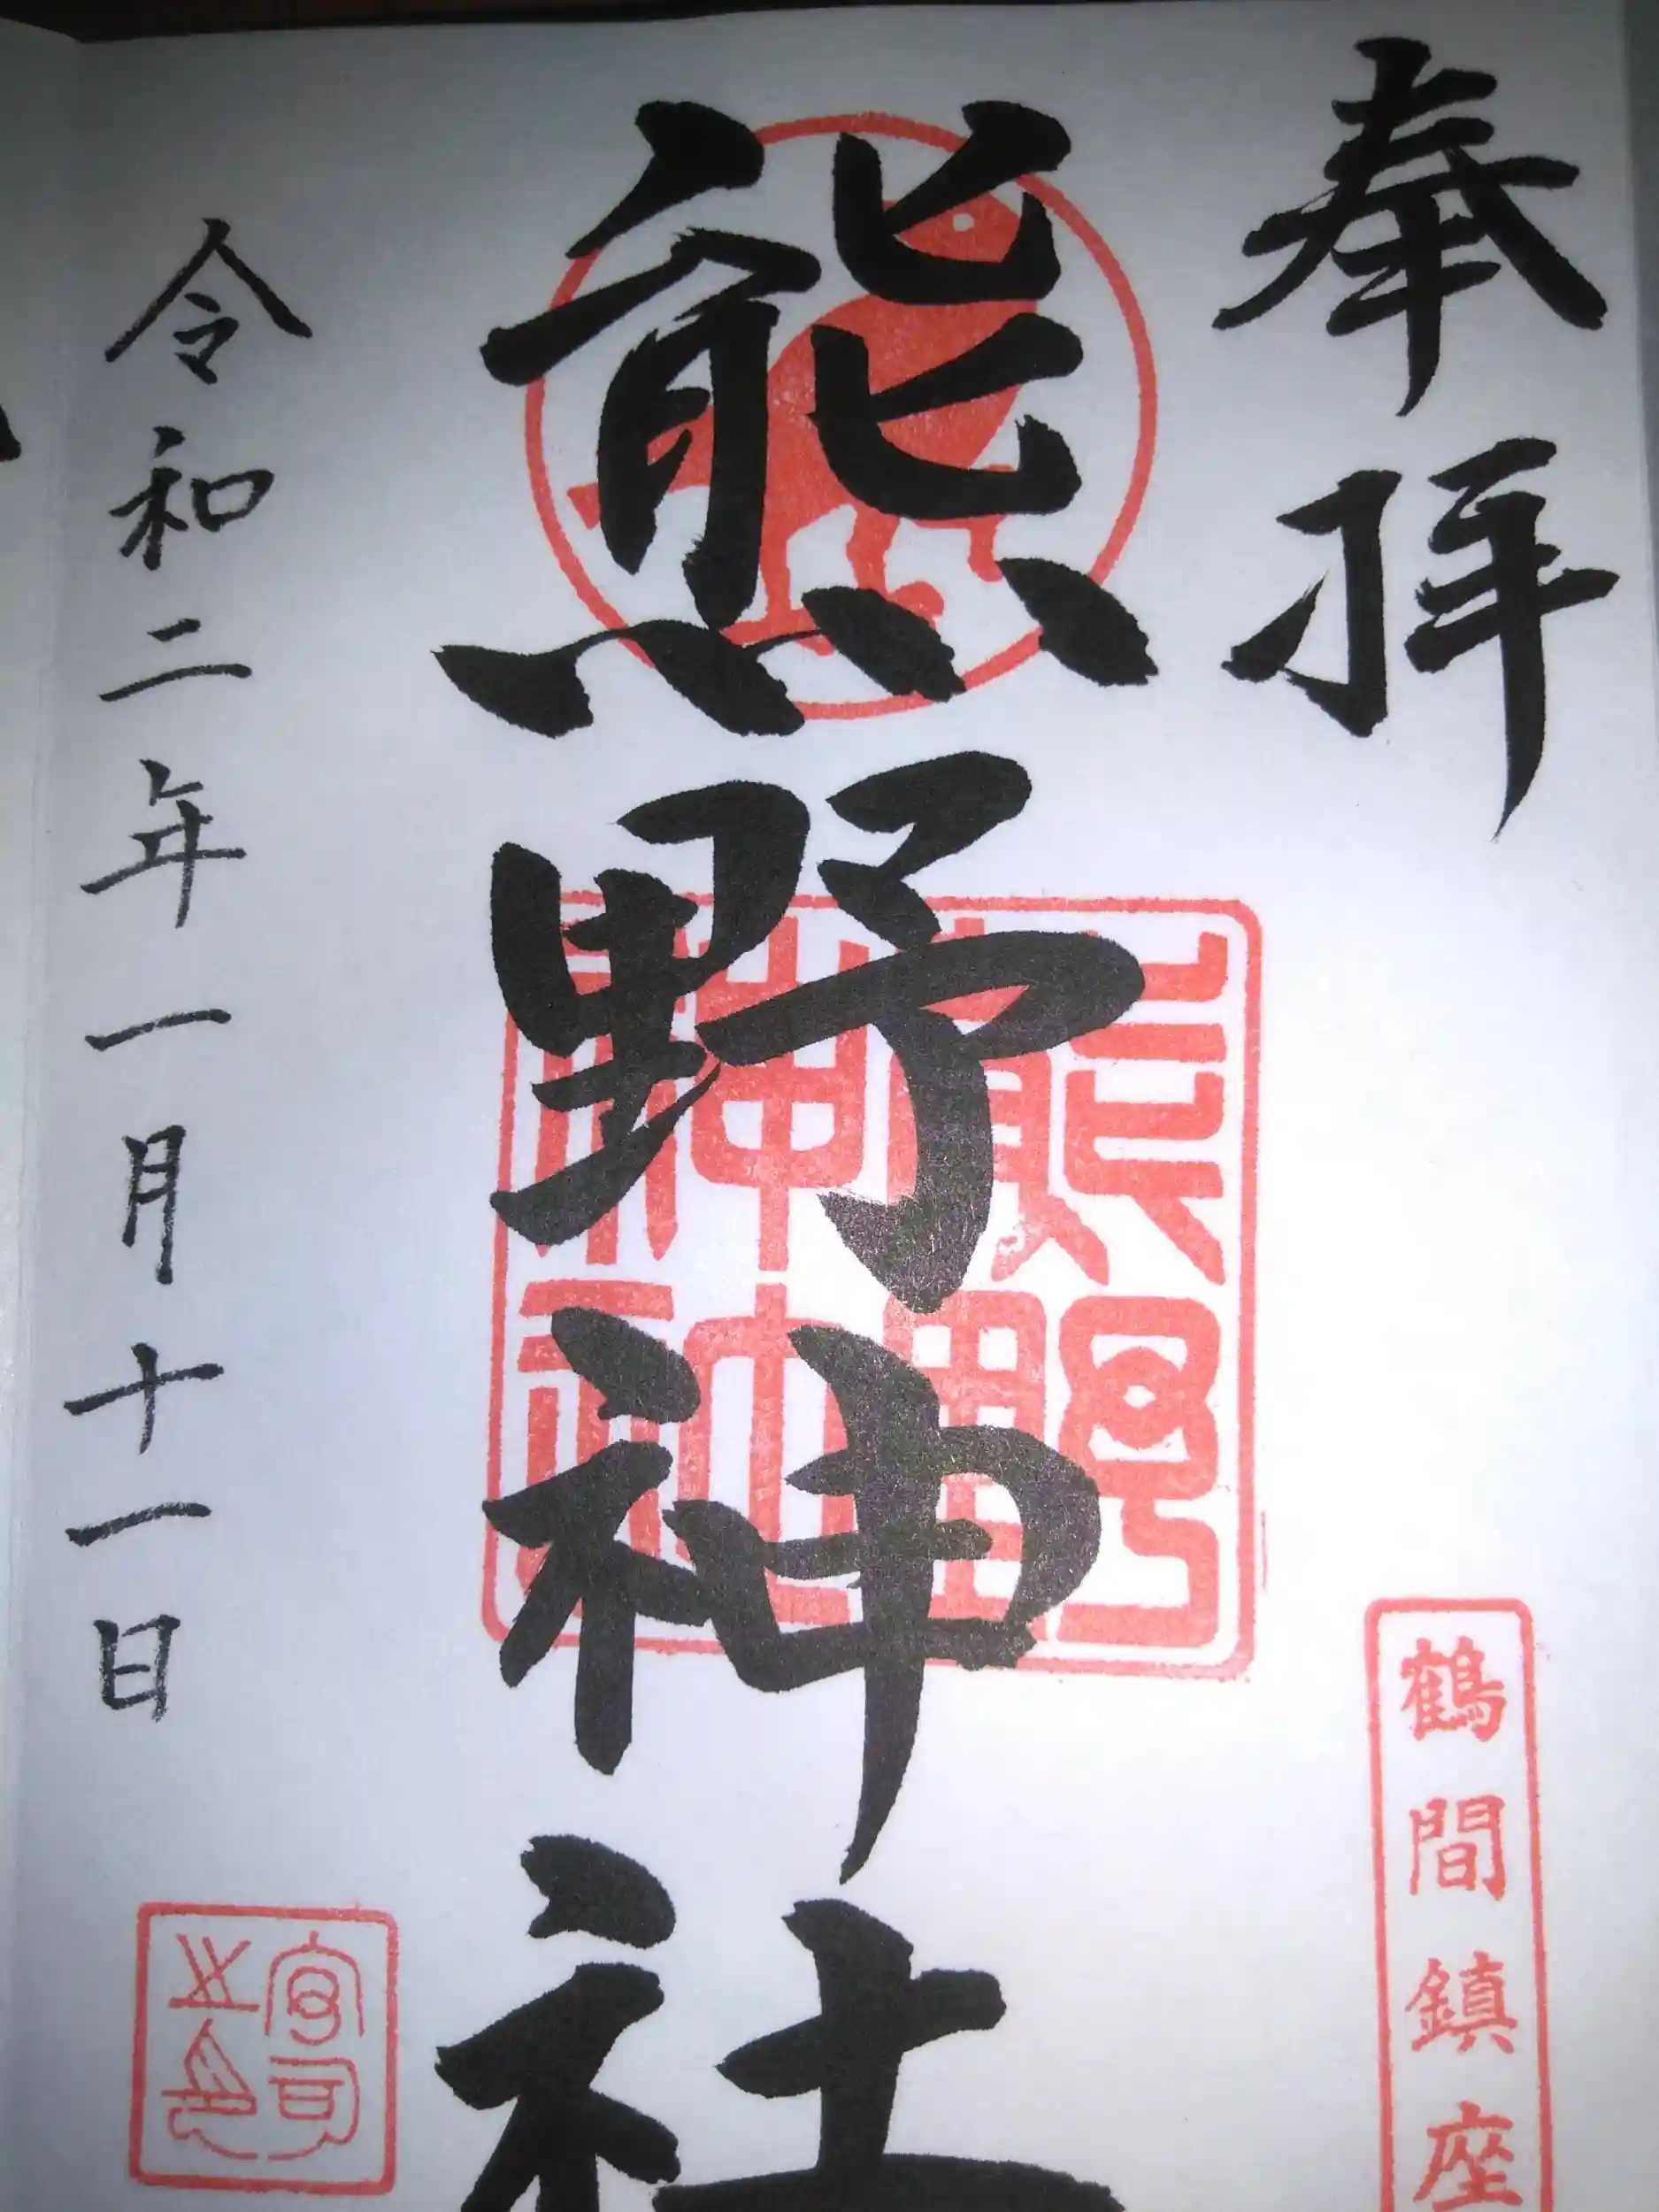 奉拝
鶴間鎮座
熊野神社
熊野
神社
令和二年一月十一日
宮司
之印